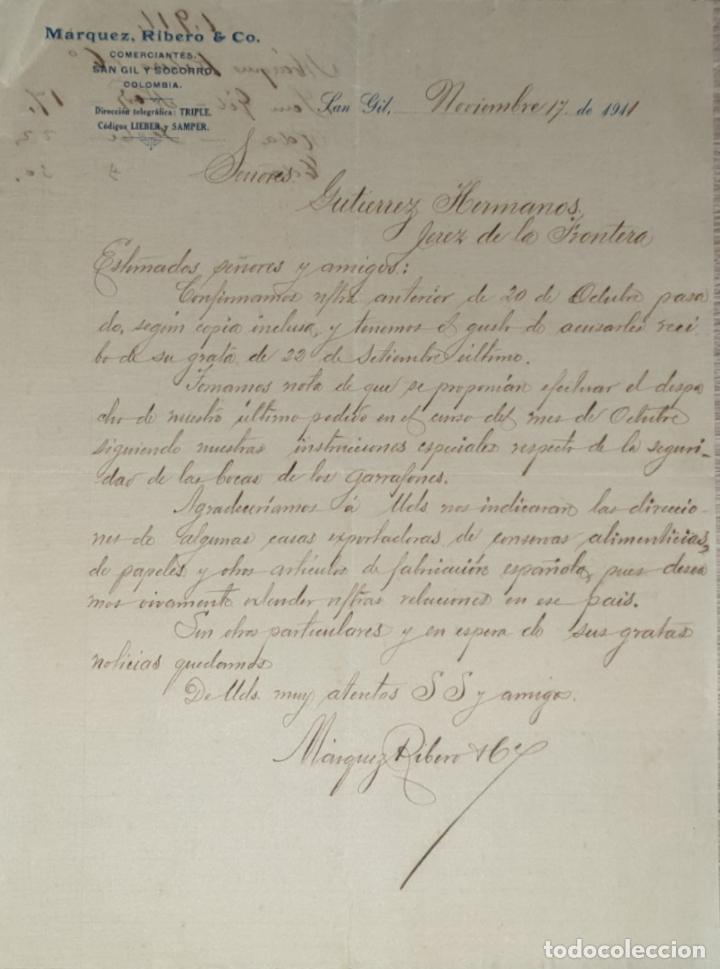 Márquez, Ribero & Co.
COMERCIANTES.
SAN GIL Y SOCORRO
COLOMBIA.
Dirección telegráfica: TRIPLE.
Códigos LIEBER y SAMPER.
San Gil, Noviembre 17. de 1911
Señores
Gutierrez Hermanos,
Jerez de la Frontera
Estimados señores y amigos:
Confirmamos nstra anterior de 20 de Octubre pasa
do, según copia inclusa, y tenemos el gusto de acusarles reci
bo de su grata de 22 de Setiembre último.
Tomamos nota de que se proponían efectuar el despa
cho de nuestro último pedido en el curso del mes de Octubre
siguiendo nuestras instrucciones especiales respecto de la seguri-
dad de las bocas de los garrafones.
Agradeceríamos á Uds nos indicaran las direccio-
nes de algunas casas exportadoras de conservas alimenticias,
de papeles y otros artículos de fabricación española, pues desea
mos vivamente extender nstras relaciones en ese pais.
Sin otros particulares y en espera de sus gratas
noticias quedamos
De Uds. muy atentos S S y amigos.
Márquez Ribero & Cº
todocoleccion